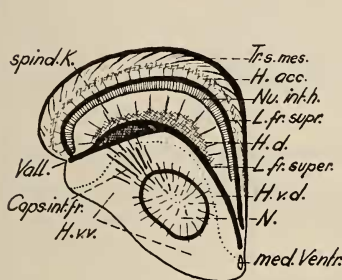 spind. K.
Vall.
Caps. int. fr.
H. v. v.
Tr. s. mes.
H. acc.
Nu. int. h.
L. fr. supr.
H. d.
L. fr. super.
H. v. d.
N.
med. Ventr.